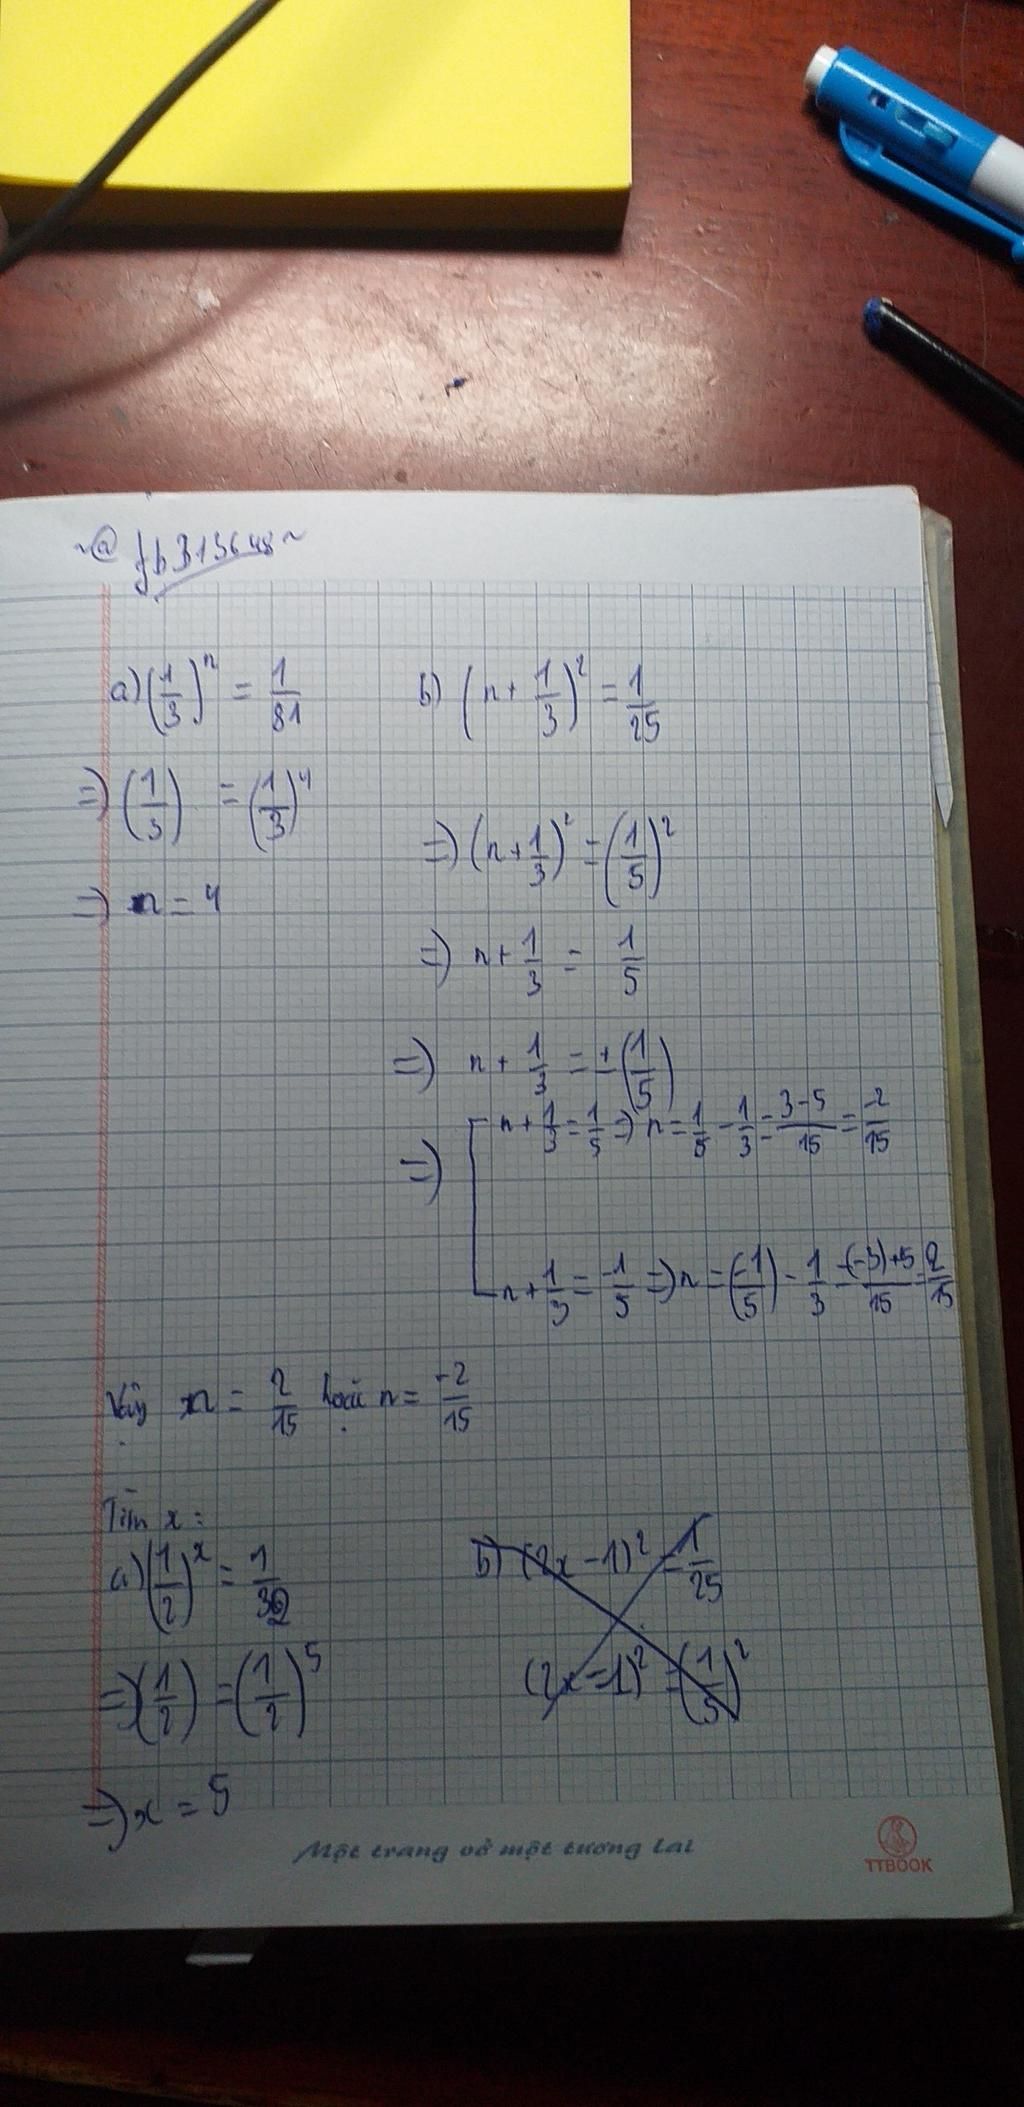 ~@ fb313648~
a) (1/3)^n = 1/81
=> (1/3) = (1/3)^4
=> n = 4
b) (n + 1/3)^2 = 1/25
=> (n + 1/3)^2 = (1/5)^2
=> n + 1/3 = 1/5
=> n + 1/3 = ±(1/5)
=> [ n + 1/3 = 1/5 => n = 1/5 - 1/3 = 3-5/15 = -2/15
n + 1/3 = -1/5 => n = (-1/5) - 1/3 = (-3)+5/15 = 2/15
Vậy n = 2/15 hoặc n = -2/15
Tìm x:
a) (1/2)^x = 1/32
=> (1/2) = (1/2)^5
=> x = 5
b) (2x - 1)^2 = 1/25
(2x - 1)^2 = (1/5)^2
Một trang vở một tương lai
TTBOOK